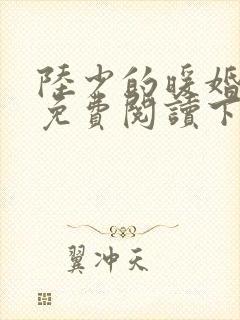 陸少的暖婚
免費閱讀下
翼沖天